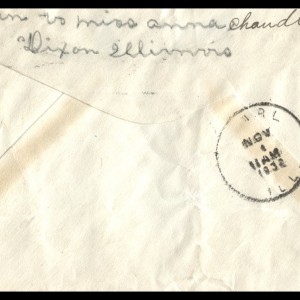 to miss anna Chaudl
Dixon Illinois
NOV
1
11 AM
1932
ILL